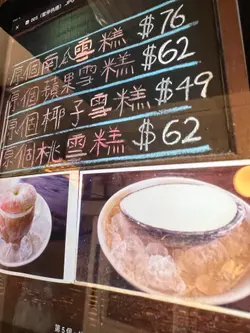 原個南瓜雪糕 $76
原個蘋果雪糕 $62
原個椰子雪糕 $49
原個桃雪糕 $62